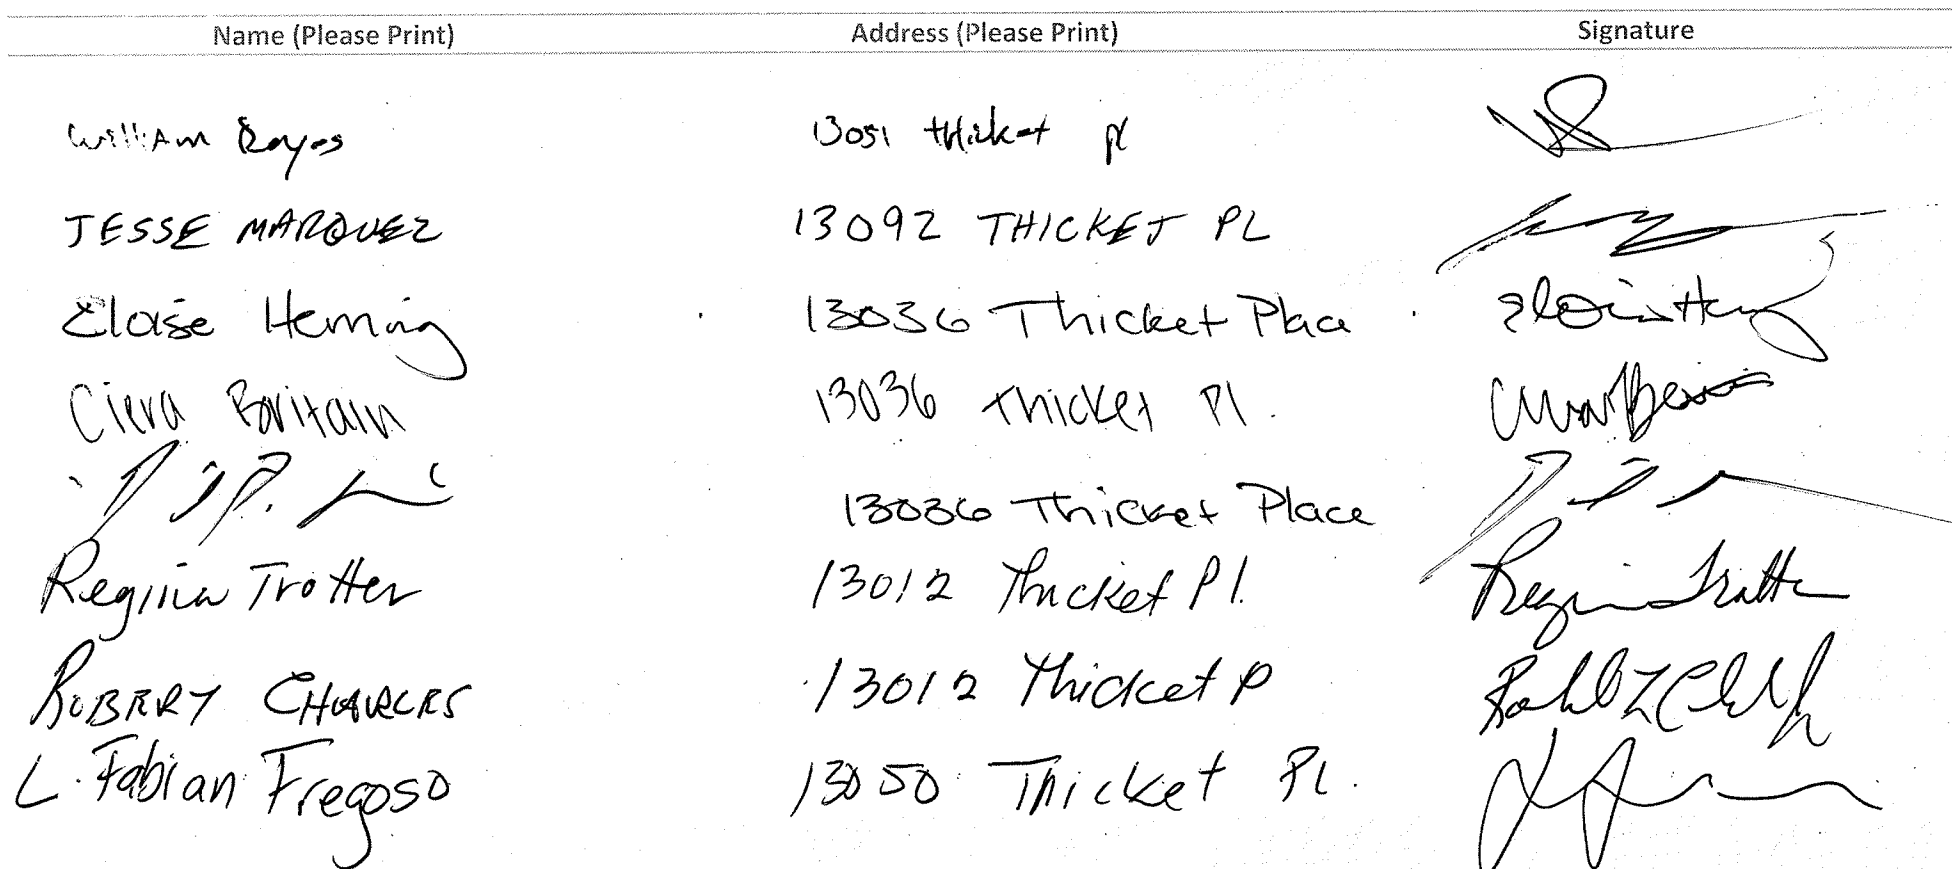 Name (Please Print) Address (Please Print) Signature
William Reyes 13051 thicket pl
JESSE MARQUEZ 13092 THICKET PL
Eloise Herning 13036 Thicket Place
Ciera Britain 13036 Thicket Pl.
13036 Thicket Place
Regina Trotter 13012 Thicket Pl. Regina Trotter
ROBERT CHARLES 13012 Thicket P
L. Fabian Fregoso 13050 Thicket PL.